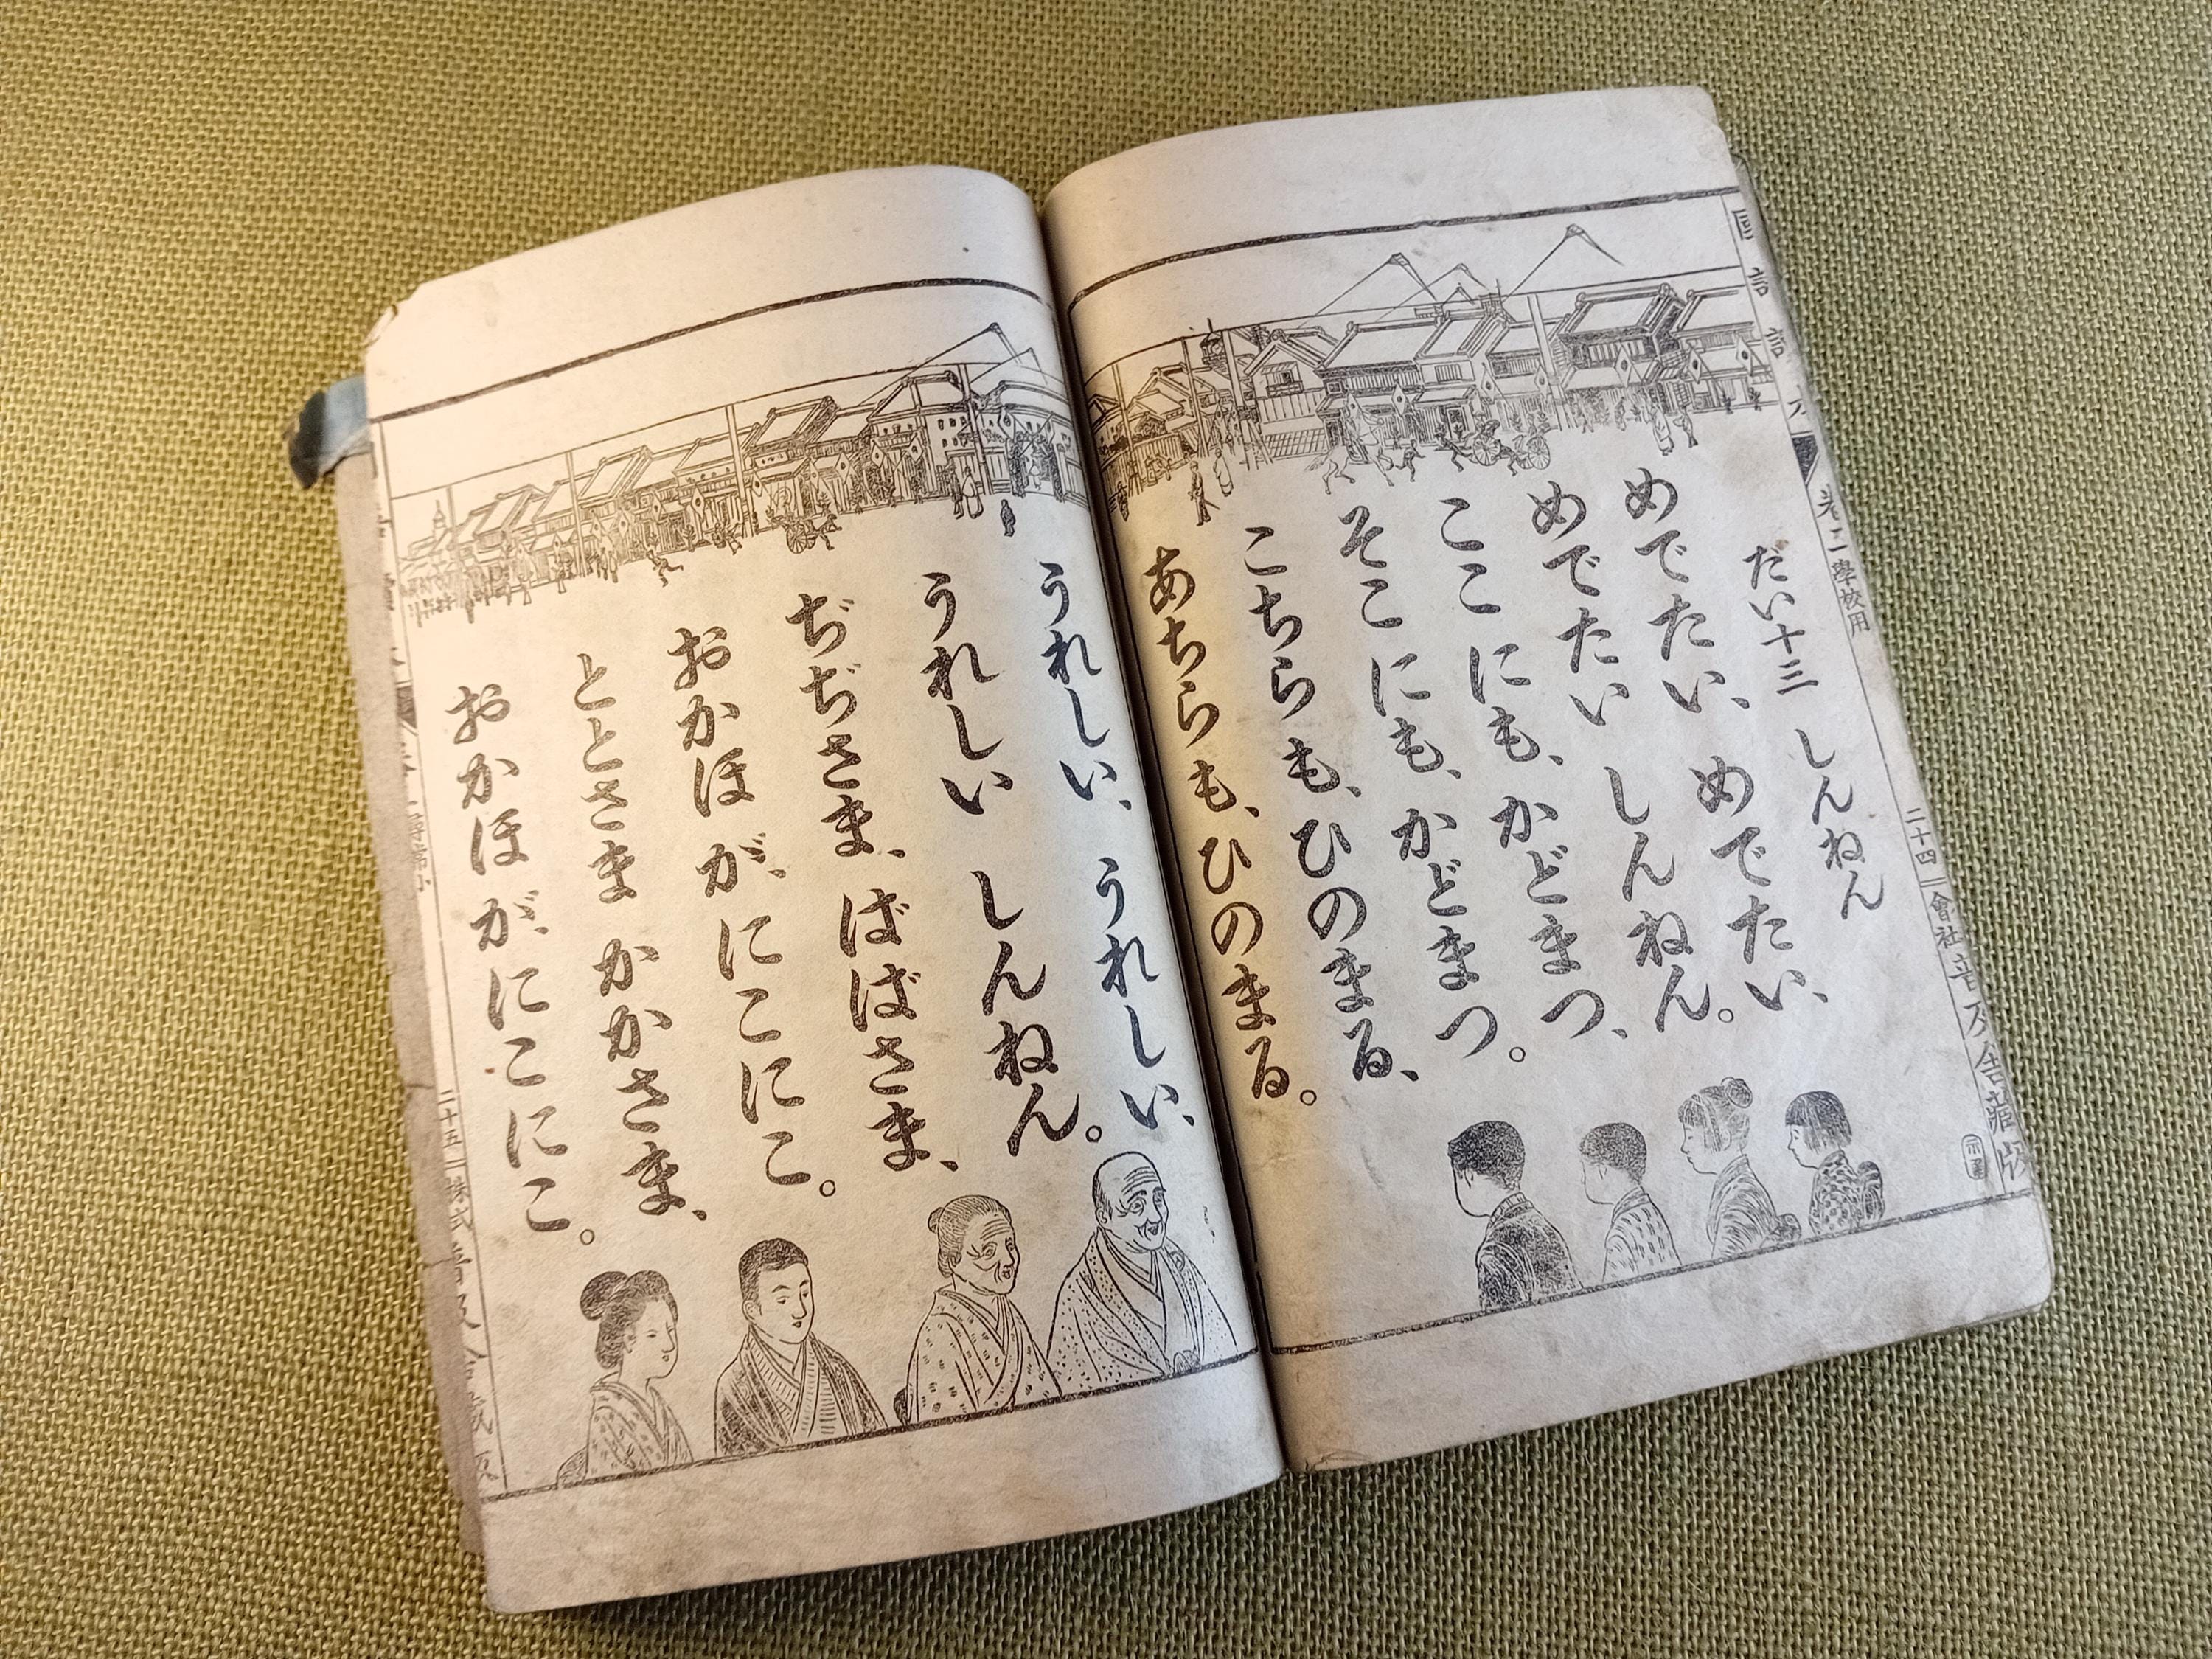 だい十三 しんねん
めでたい、めでたい、
めでたい しんねん。
ここ にも、かどまつ、
そこ にも、かどまつ。
こちら も、ひのまる、
あちら も、ひのまる。
うれしい、うれしい、
うれしい しんねん。
ぢぢさま、ばばさま、
おかほ が、にこにこ。
ととさま かかさま、
おかほ が、にこにこ。
卷二 學校用
二十四
會社普及舍藏版
尋常小
二十五
株式